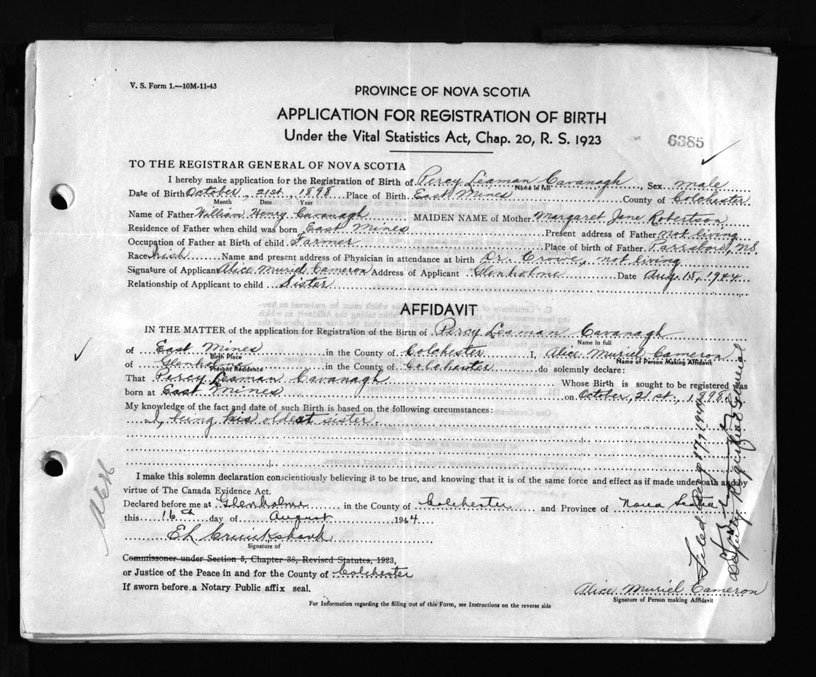 V. S. Form 1.—10M-11-43
PROVINCE OF NOVA SCOTIA
APPLICATION FOR REGISTRATION OF BIRTH
Under the Vital Statistics Act, Chap. 20, R. S. 1923
6385
TO THE REGISTRAR GENERAL OF NOVA SCOTIA
I hereby make application for the Registration of Birth of Percy Leaman Cavanagh, Sex male
Name in full
Date of Birth October, 21st, 1898 Place of Birth East Mines County of Colchester
Month Date Year
Name of Father William Henry Cavanagh MAIDEN NAME of Mother Margaret Jane Robertson
Residence of Father when child was born East Mines Present address of Father not living
Occupation of Father at Birth of child Farmer Place of birth of Father Parrsboro, N.S.
Race Irish Name and present address of Physician in attendance at birth Dr. Crowe, not living
Signature of Applicant Alice Muriel Cameron Address of Applicant Glenholme Date Aug. 15, 1944
Relationship of Applicant to child Sister
AFFIDAVIT
IN THE MATTER of the application for Registration of the Birth of Percy Leaman Cavanagh
Name in full
of East Mines in the County of Colchester I, Alice Muriel Cameron
Birth Place Name of Person Making Affidavit
of in the County of Colchester do solemnly declare:
Present Residence
That Percy Leaman Cavanagh Whose Birth is sought to be registered was
born at East Mines on October, 21st, 1898
My knowledge of the fact and date of such Birth is based on the following circumstances:
being his oldest sister.
I make this solemn declaration conscientiously believing it to be true, and knowing that it is of the same force and effect as if made under oath and by
virtue of The Canada Evidence Act.
Declared before me at Glenholme in the County of Colchester and Province of Nova Scotia
this 16th day of August 1944
E L Cruickshank
Signature of
Commissioner under Section 5, Chapter 38, Revised Statutes, 1923,
or Justice of the Peace in and for the County of Colchester
If sworn before a Notary Public affix seal.
Alice Muriel Cameron
Signature of Person making Affidavit
For Information regarding the filling out of this Form, see Instructions on the reverse side
Filed Aug 17, 1944
Deputy Registrar General